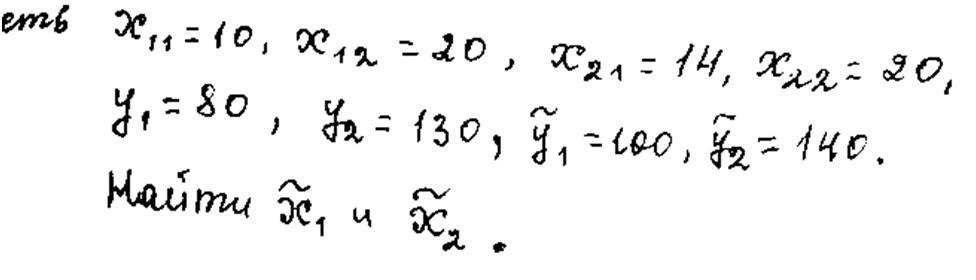 еть x₁₁ = 10, x₁₂ = 20, x₂₁ = 14, x₂₂ = 20,
y₁ = 80, y₂ = 130, ỹ₁ = 100, ỹ₂ = 140.
Найти x̃₁ и x̃₂.